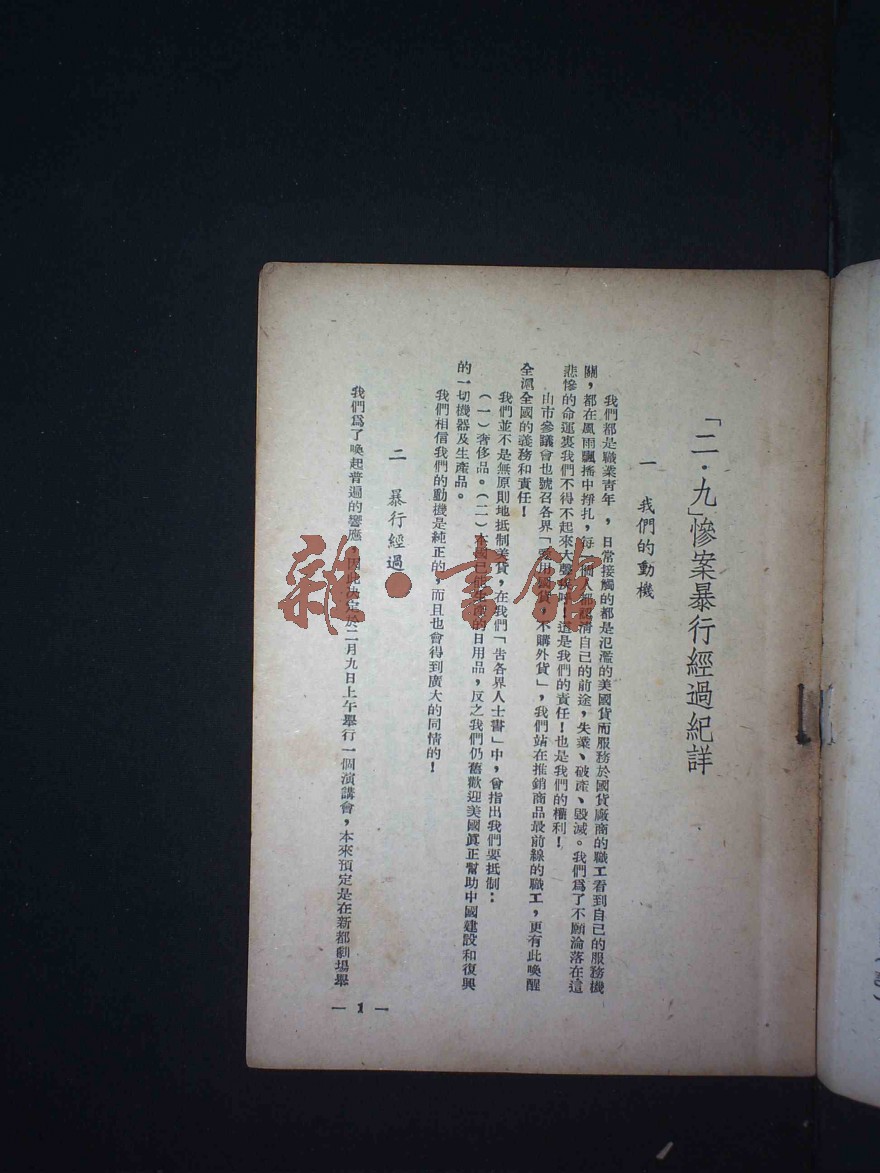 「二·九」慘案暴行經過紀詳
一 我們的動機
我們都是職業青年，日常接觸的都是氾濫的美國貨而服務於國貨廠商的職工看到自己的服務機
關，都在風雨飄搖中掙扎，每一個人都認清自己的前途，失業、破產、毀滅。我們爲了不願淪落在這
悲慘的命運裏我們不得不起來大聲疾呼！這是我們的責任！也是我們的權利！
山市參議會也號召各界「要用國貨，不購外貨」，我們站在推銷商品最前線的職工，更有此喚醒
全滬全國的義務和責任！
我們並不是無原則地抵制美貨，在我們「告各界人士書」中，曾指出我們要抵制：
（一）奢侈品。（二）本國已能生產的日用品，反之我們仍舊歡迎美國眞正幫助中國建設和復興
的一切機器及生產品。
我們相信我們的動機是純正的，而且也會得到廣大的同情的！
二 暴行經過
我們爲了喚起普遍的響應，因此決定於二月九日上午舉行一個演講會，本來預定是在新都劇場舉
— 1 —
雜·書館